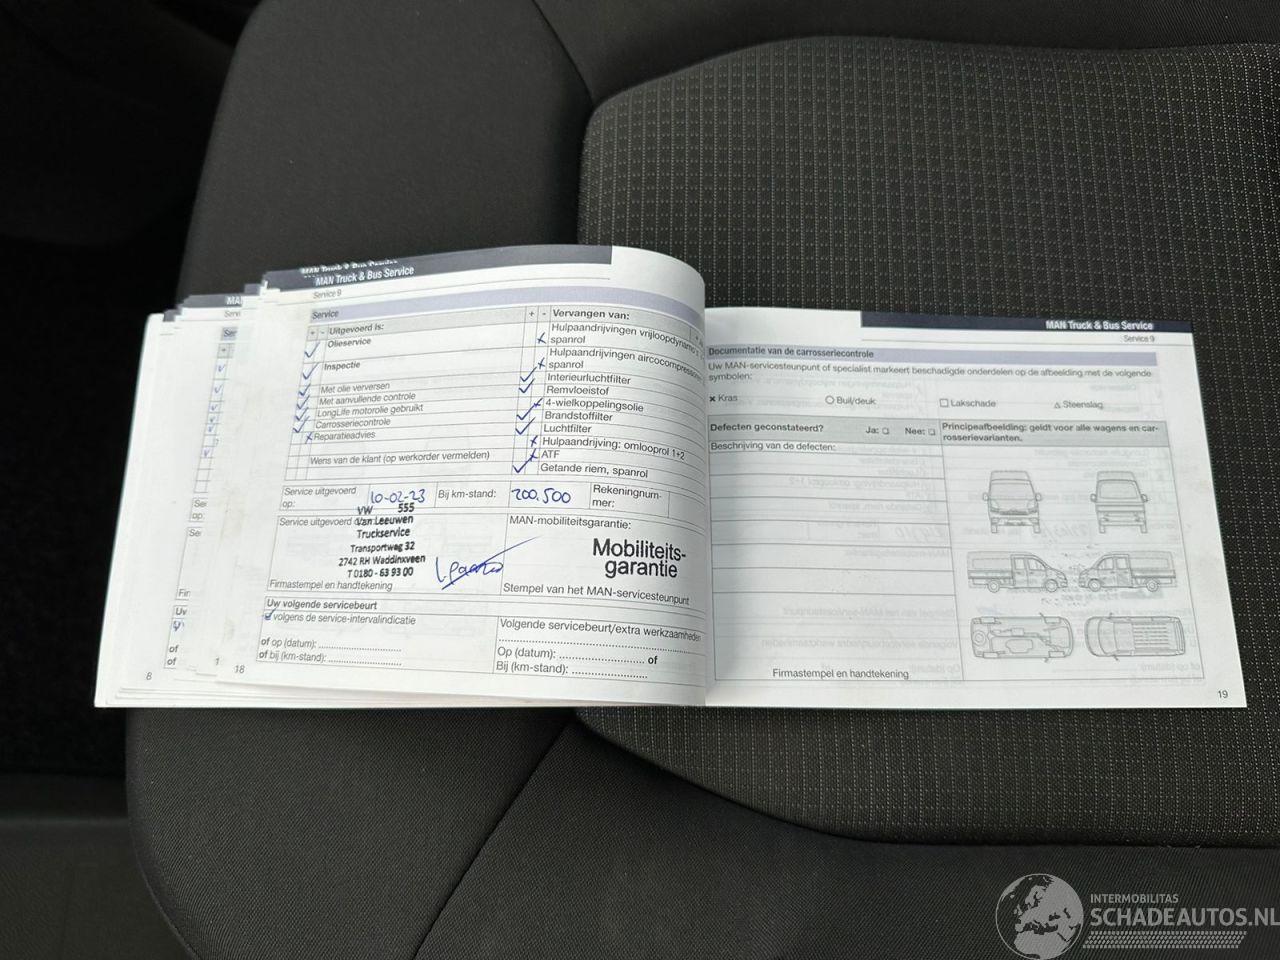 MAN Truck & Bus Service
MAN Truck & Bus Service
Service 9
Service
+ - Uitgevoerd is:
Olieservice
Inspectie
Met olie verversen
Met aanvullende controle
LongLife motorolie gebruikt
Carrosseriecontrole
Reparatieadvies
Wens van de klant (op werkorder vermelden)
+ - Vervangen van:
Hulpaandrijvingen vrijloopdynamo
spanrol
Hulpaandrijvingen aircocompressor
spanrol
Interieurluchtfilter
Remvloeistof
4-wielkoppelingsolie
Brandstoffilter
Luchtfilter
Hulpaandrijving: omlooprol 1+2
ATF
Getande riem, spanrol
Service uitgevoerd
op:
10-02-23
Bij km-stand:
200.500
Rekeningnum-
mer:
Service uitgevoerd
VW 555
Van Leeuwen
Truckservice
Transportweg 32
2742 RH Waddinxveen
T 0180 - 63 93 00
Firmastempel en handtekening
MAN-mobiliteitsgarantie:
Mobiliteits-
garantie
Stempel van het MAN-servicesteunpunt
Uw volgende servicebeurt
volgens de service-intervalindicatie
of op (datum):
of bij (km-stand):
Volgende servicebeurt/extra werkzaamheden
Op (datum): of
Bij (km-stand):
8
18
MAN Truck & Bus Service
Service 9
Documentatie van de carrosseriecontrole
Uw MAN-servicesteunpunt of specialist markeert beschadigde onderdelen op de afbeelding met de volgende
symbolen:
x Kras
Buil/deuk
Lakschade
Steenslag
Defecten geconstateerd? Ja: Nee:
Beschrijving van de defecten:
Principeafbeelding: geldt voor alle wagens en car-
rosserievarianten.
Firmastempel en handtekening
19
INTERMOBILITAS
SCHADEAUTOS.NL